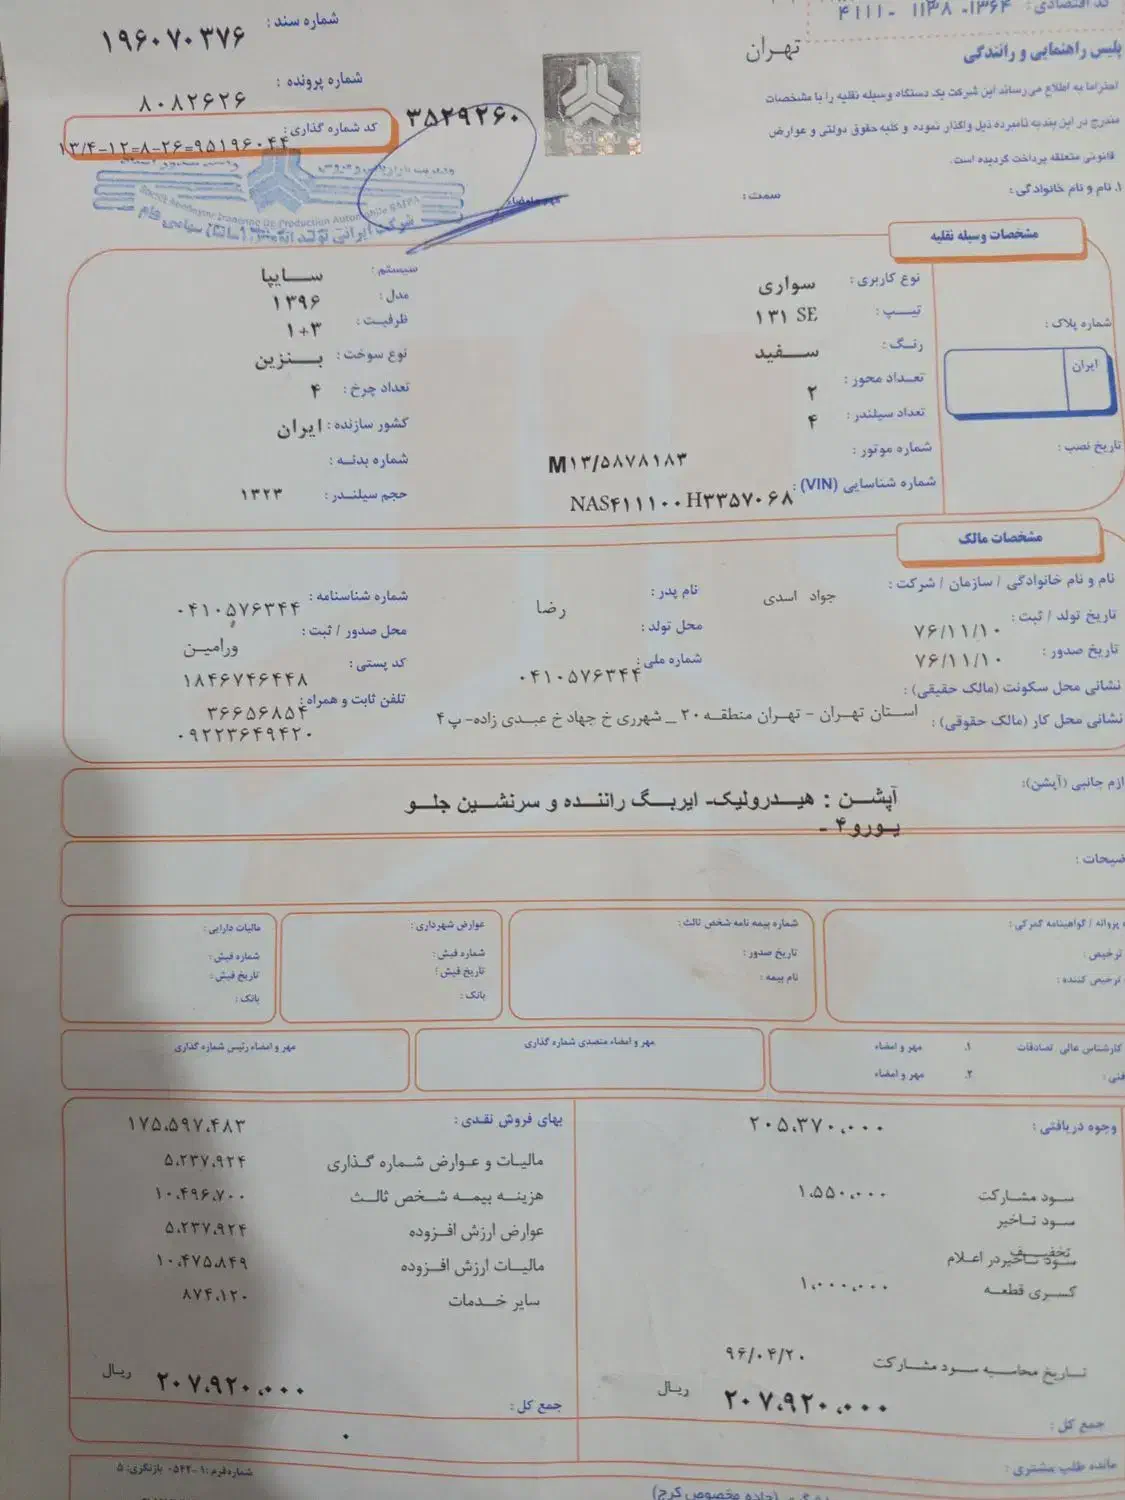 شماره سند : ۱۹۶۰۷۰۳۷۶
کد اقتصادی : ۱۳۶۴-۱۱۳۸-۴۱۱۱
پلیس راهنمایی و رانندگی تهران
شماره پرونده : ۸۰۸۲۶۲۶
احتراما به اطلاع می رساند این شرکت یک دستگاه وسیله نقلیه را با مشخصات
۳۵۲۹۲۶۰
کد شماره گذاری :
مندرج در این بند به نامبرده ذیل واگذار نموده و کلیه حقوق دولتی و عوارض
۱۳/۴-۱۲=۸-۲۶=۹۵۱۹۶۰۴۴
قانونی متعلقه پرداخت گردیده است.
۱. نام و نام خانوادگی :
سمت :
مهر و امضاء
شرکت ایرانی تولید اتومبیل (سایپا) سهامی عام
مشخصات وسیله نقلیه
نوع کاربری : سواری
سیستم : سایپا
تیپ : ۱۳۱ SE
مدل : ۱۳۹۶
شماره پلاک :
رنگ : سفید
ظرفیت : ۱+۳
ایران
تعداد محور : ۲
نوع سوخت : بنزین
تعداد سیلندر : ۴
تعداد چرخ : ۴
تاریخ نصب :
شماره موتور : M۱۳/۵۸۷۸۱۸۳
کشور سازنده : ایران
شماره بدنه :
شماره شناسایی (VIN) : NAS۴۱۱۱۰۰H۳۳۵۷۰۶۸
حجم سیلندر : ۱۳۲۳
مشخصات مالک
نام و نام خانوادگی / سازمان / شرکت : جواد اسدی
نام پدر : رضا
شماره شناسنامه : ۰۴۱۰۵۷۶۳۴۴
تاریخ تولد / ثبت : ۷۶/۱۱/۱۰
محل تولد :
محل صدور / ثبت : ورامین
تاریخ صدور : ۷۶/۱۱/۱۰
شماره ملی : ۰۴۱۰۵۷۶۳۴۴
کد پستی : ۱۸۴۶۷۴۶۴۴۸
نشانی محل سکونت (مالک حقیقی) :
تلفن ثابت و همراه : ۳۶۶۵۶۸۵۴
نشانی محل کار (مالک حقوقی) : استان تهران - تهران منطقه ۲۰ _ شهرری خ جهاد خ عبدی زاده- پ ۴
۰۹۲۲۳۶۴۹۴۲۰
ازم جانبی (آپشن):
آپشن : هیدرولیک- ایربگ راننده و سرنشین جلو
یورو۴ -
ضیحات :
پروانه / گواهینامه گمرکی :
شماره بیمه نامه شخص ثالث :
عوارض شهرداری :
مالیات دارایی :
ترخیص :
تاریخ صدور :
شماره فیش :
شماره فیش :
ترخیص کننده :
نام بیمه :
تاریخ فیش :
تاریخ فیش :
بانک :
بانک :
کارشناس عالی تصادفات ۱. مهر و امضاء
مهر و امضاء متصدی شماره گذاری
مهر و امضاء رئیس شماره گذاری
فنی : ۲. مهر و امضاء
وجوه دریافتی : ۲۰۵،۳۷۰،۰۰۰
بهای فروش نقدی : ۱۷۵،۵۹۷،۴۸۳
مالیات و عوارض شماره گذاری ۵،۲۳۷،۹۲۴
سود مشارکت ۱،۵۵۰،۰۰۰
هزینه بیمه شخص ثالث ۱۰،۴۹۶،۷۰۰
سود تاخیر
عوارض ارزش افزوده ۵،۲۳۷،۹۲۴
تخفیف
سود تاخیردر اعلام
مالیات ارزش افزوده ۱۰،۴۷۵،۸۴۹
کسری قطعه ۱،۰۰۰،۰۰۰
سایر خدمات ۸۷۴،۱۲۰
تاریخ محاسبه سود مشارکت ۹۶/۰۴/۲۰
جمع کل : ۲۰۷،۹۲۰،۰۰۰ ریال
جمع کل : ۲۰۷،۹۲۰،۰۰۰ ریال
۰
مانده طلب مشتری :
شماره فرم : ۱-۰۵۴۴ بازنگری: ۵
(جاده مخصوص کرج)